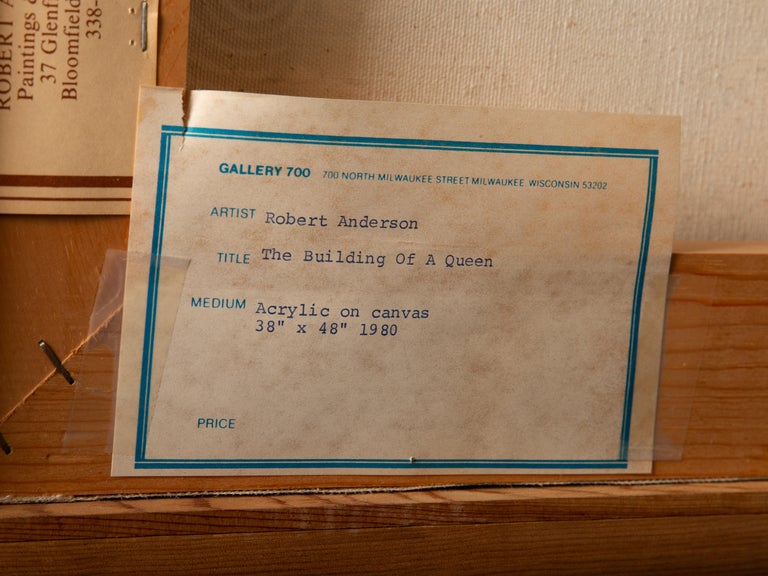 ROBERT A
Paintings &
37 Glenf
Bloomfield
338-
GALLERY 700 700 NORTH MILWAUKEE STREET MILWAUKEE. WISCONSIN 53202
ARTIST Robert Anderson
TITLE The Building Of A Queen
MEDIUM Acrylic on canvas
38" x 48" 1980
PRICE